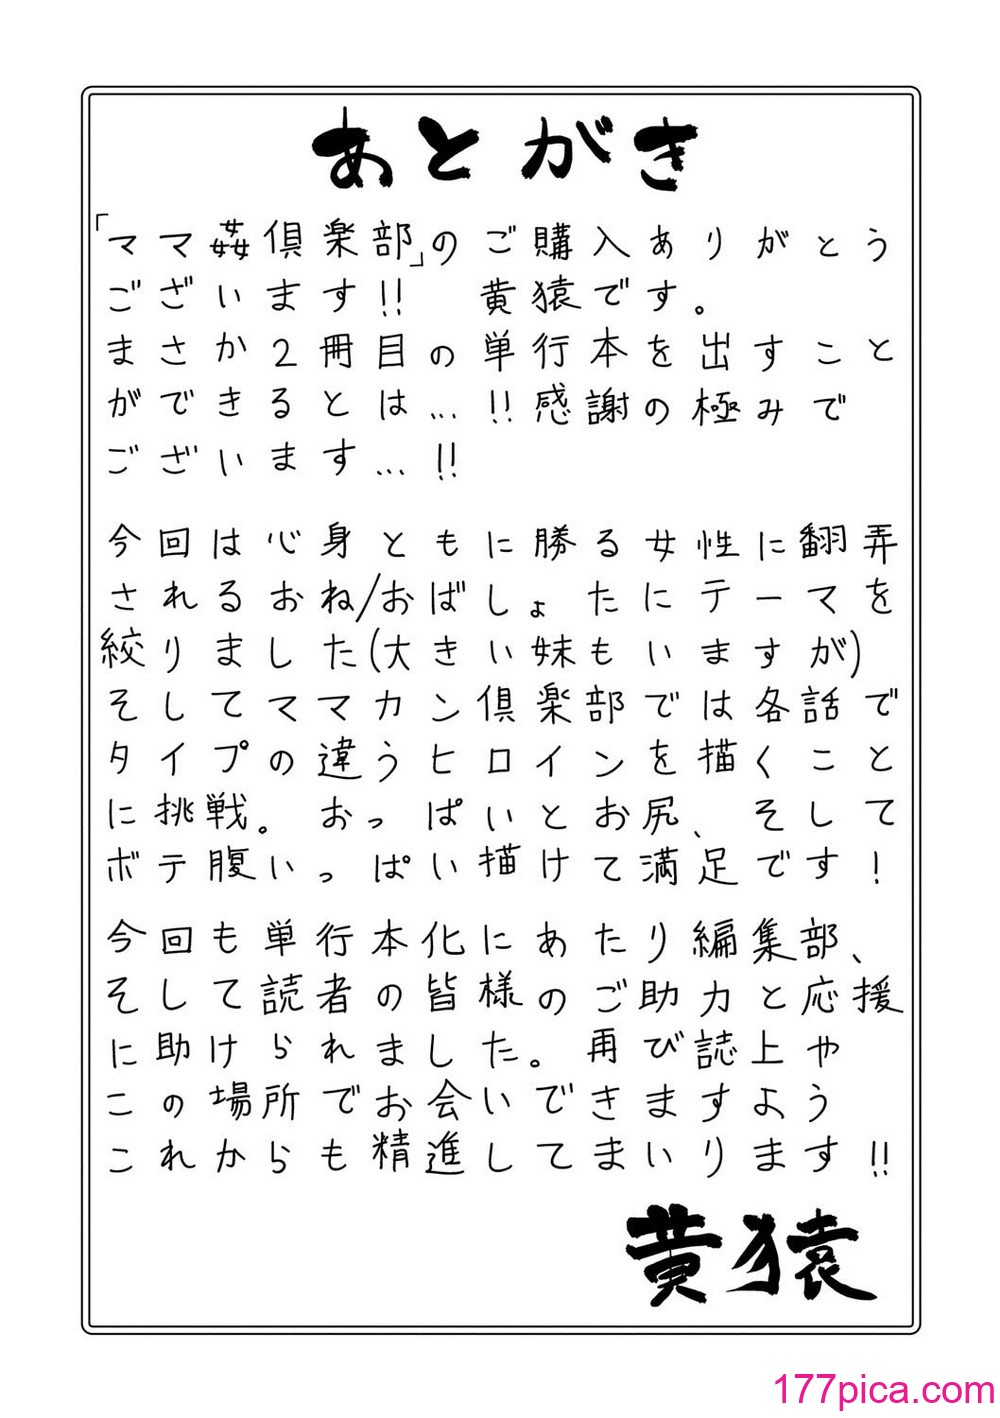 あとがき
「ママ姦倶楽部」のご購入ありがとう
ございます!! 黄猿です。
まさか2冊目の単行本を出すこと
ができるとは…!!感謝の極みで
ございます…!!
今回は心身ともに勝る女性に翻弄
されるおね/おばしょたにテーマを
絞りました(大きい妹もいますが)
そしてママカン倶楽部では各話で
タイプの違うヒロインを描くこと
に挑戦。おっぱいとお尻、そして
ボテ腹いっぱい描けて満足です!
今回も単行本化にあたり編集部、
そして読者の皆様のご助力と応援
に助けられました。再び誌上や
この場所でお会いできますよう
これからも精進してまいります!!
黄猿
177pica.com